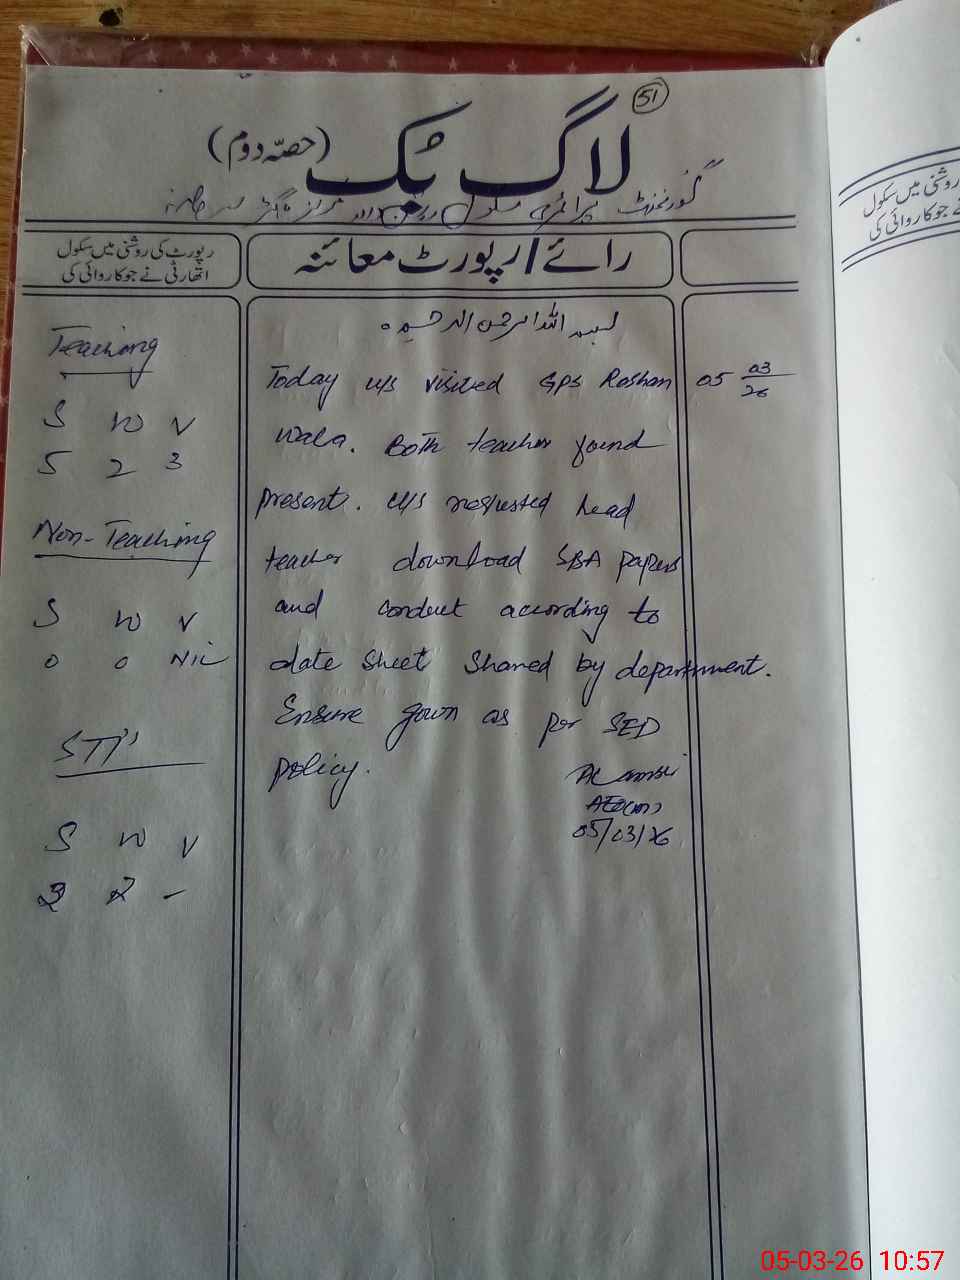 51
لاگ بک (حصہ دوم)
گورنمنٹ پرائمری سکول
رپورٹ کی روشنی میں سکول
اتھارٹی نے جو کاروائی کی
رائے/رپورٹ معائنہ
بسم اللہ الرحمن الرحیم
Today u/s visited GPS Roshan
wala. Both teacher found
present. u/s requested head
teacher download SBA papers
and conduct according to
date sheet shared by department.
Ensure gown as per SED
policy.
AEO(m)
05/03/26
05 03/26
Teaching
S W V
5 2 3
Non-Teaching
S W V
0 0 Nil
STI's
S W V
2 -
روشنی میں سکول
نے جو کاروائی کی
05-03-26 10:57